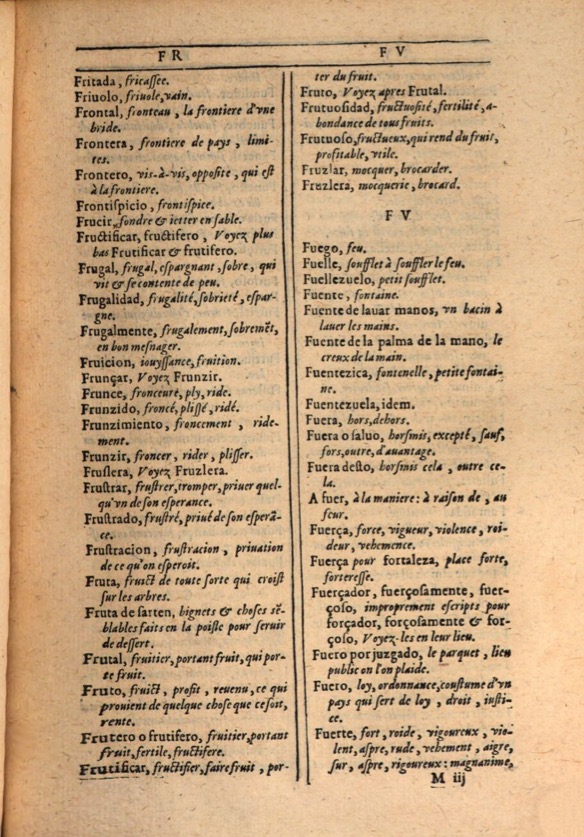 FR
Fritada, fricassee.
Friuolo, friuole, vain.
Frontal, fronteau, la frontiere d'vne
bride.
Frontera, frontiere de pays, limi-
tes.
Frontero, vis-à-vis, opposite, qui est
à la frontiere.
Frontispicio, frontispice.
Frucir, fondre & ietter en sable.
Fructificar, fructifero, Voyez plus
bas Frutificar & frutifero.
Frugal, frugal, espargnant, sobre, qui
vit & se contente de peu.
Frugalidad, frugalité, sobrieté, espar-
gne.
Frugalmente, frugalement, sobremēt,
en bon mesnager.
Fruicion, iouyssance, fruition.
Frunçar, Voyez Frunzir.
Frunce, fronceure, ply, ride.
Frunzido, froncé, plissé, ridé.
Frunzimiento, froncement, ride-
ment.
Frunzir, froncer, rider, plisser.
Fruslera, Voyez Fruzlera.
Frustrar, frustrer, tromper, priuer quel-
qu'vn de son esperance.
Frustrado, frustré, priué de son esperā-
ce.
Frustracion, frustracion, priuation
de ce qu'on esperoit.
Fruta, fruict de toute sorte qui croist
sur les arbres.
Fruta de sarten, bignets & choses sē-
blables faits en la poisle pour seruir
de dessert.
Frutal, fruitier, portant fruit, qui por-
te fruit.
Fruto, fruict, profit, reuenu, ce qui
prouient de quelque chose que ce soit,
rente.
Frutero o frutifero, fruitier, portant
fruit, fertile, fructifere.
Frutificar, fructifier, faire fruit, por-
FV
ter du fruit.
Fruto, Voyez apres Frutal.
Frutuosidad, fructuosité, fertilité, a-
bondance de tous fruits.
Frutuoso, fructueux, qui rend du fruit,
profitable, vtile.
Fruzlar, mocquer, brocarder.
Fruzlera, mocquerie, brocard.
FV
Fuego, feu.
Fuelle, soufflet à souffler le feu.
Fuellezuelo, petit soufflet.
Fuente, fontaine.
Fuente de lauar manos, vn bacin à
lauer les mains.
Fuente de la palma de la mano, le
creux de la main.
Fuentezica, fontenelle, petite fontai-
ne.
Fuentezuela, idem.
Fuera, hors, dehors.
Fuera o saluo, horsmis, excepté, sauf,
fors, outre, d'auantage.
Fuera desto, horsmis cela, outre ce-
la.
A fuer, à la maniere: à raison de, au
feur.
Fuerça, force, vigueur, violence, roi-
deur, vehemence.
Fuerça pour fortaleza, place forte,
forteresse.
Fuerçador, fuerçosamente, fuer-
çoso, improprement escripts pour
forçador, forçosamente & for-
çoso, Voyez-les en leur lieu.
Fuero por juzgado, le parquet, lieu
public on l'on plaide.
Fuero, loy, ordonnance, coustume d'vn
pays qui sert de loy, droit, iusti-
ce.
Fuerte, fort, roide, vigoureux, vio-
lent, aspre, rude, vehement, aigre,
sur, aspre, rigoureux: magnanime,
M iij